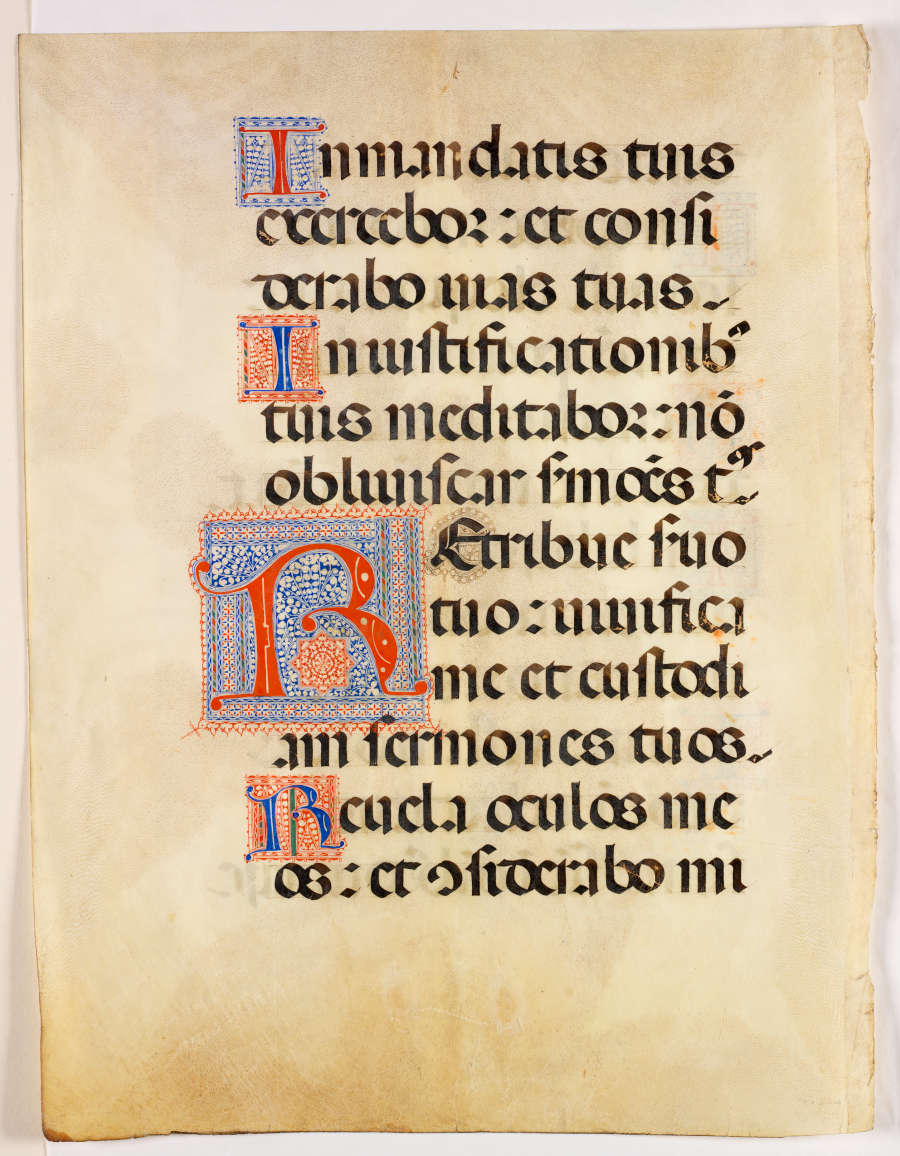 In mandatis tuis
exercebor : et consi
derabo uias tuas .
In iustificationibꝰ
tuis meditabor : nō
obliuiscar s̄mōēs t
REtribue s̄uo
tuo : uiuifica
me et custodi
am sermones tuos.
Reuela oculos me
os : et ꝯsiderabo mi